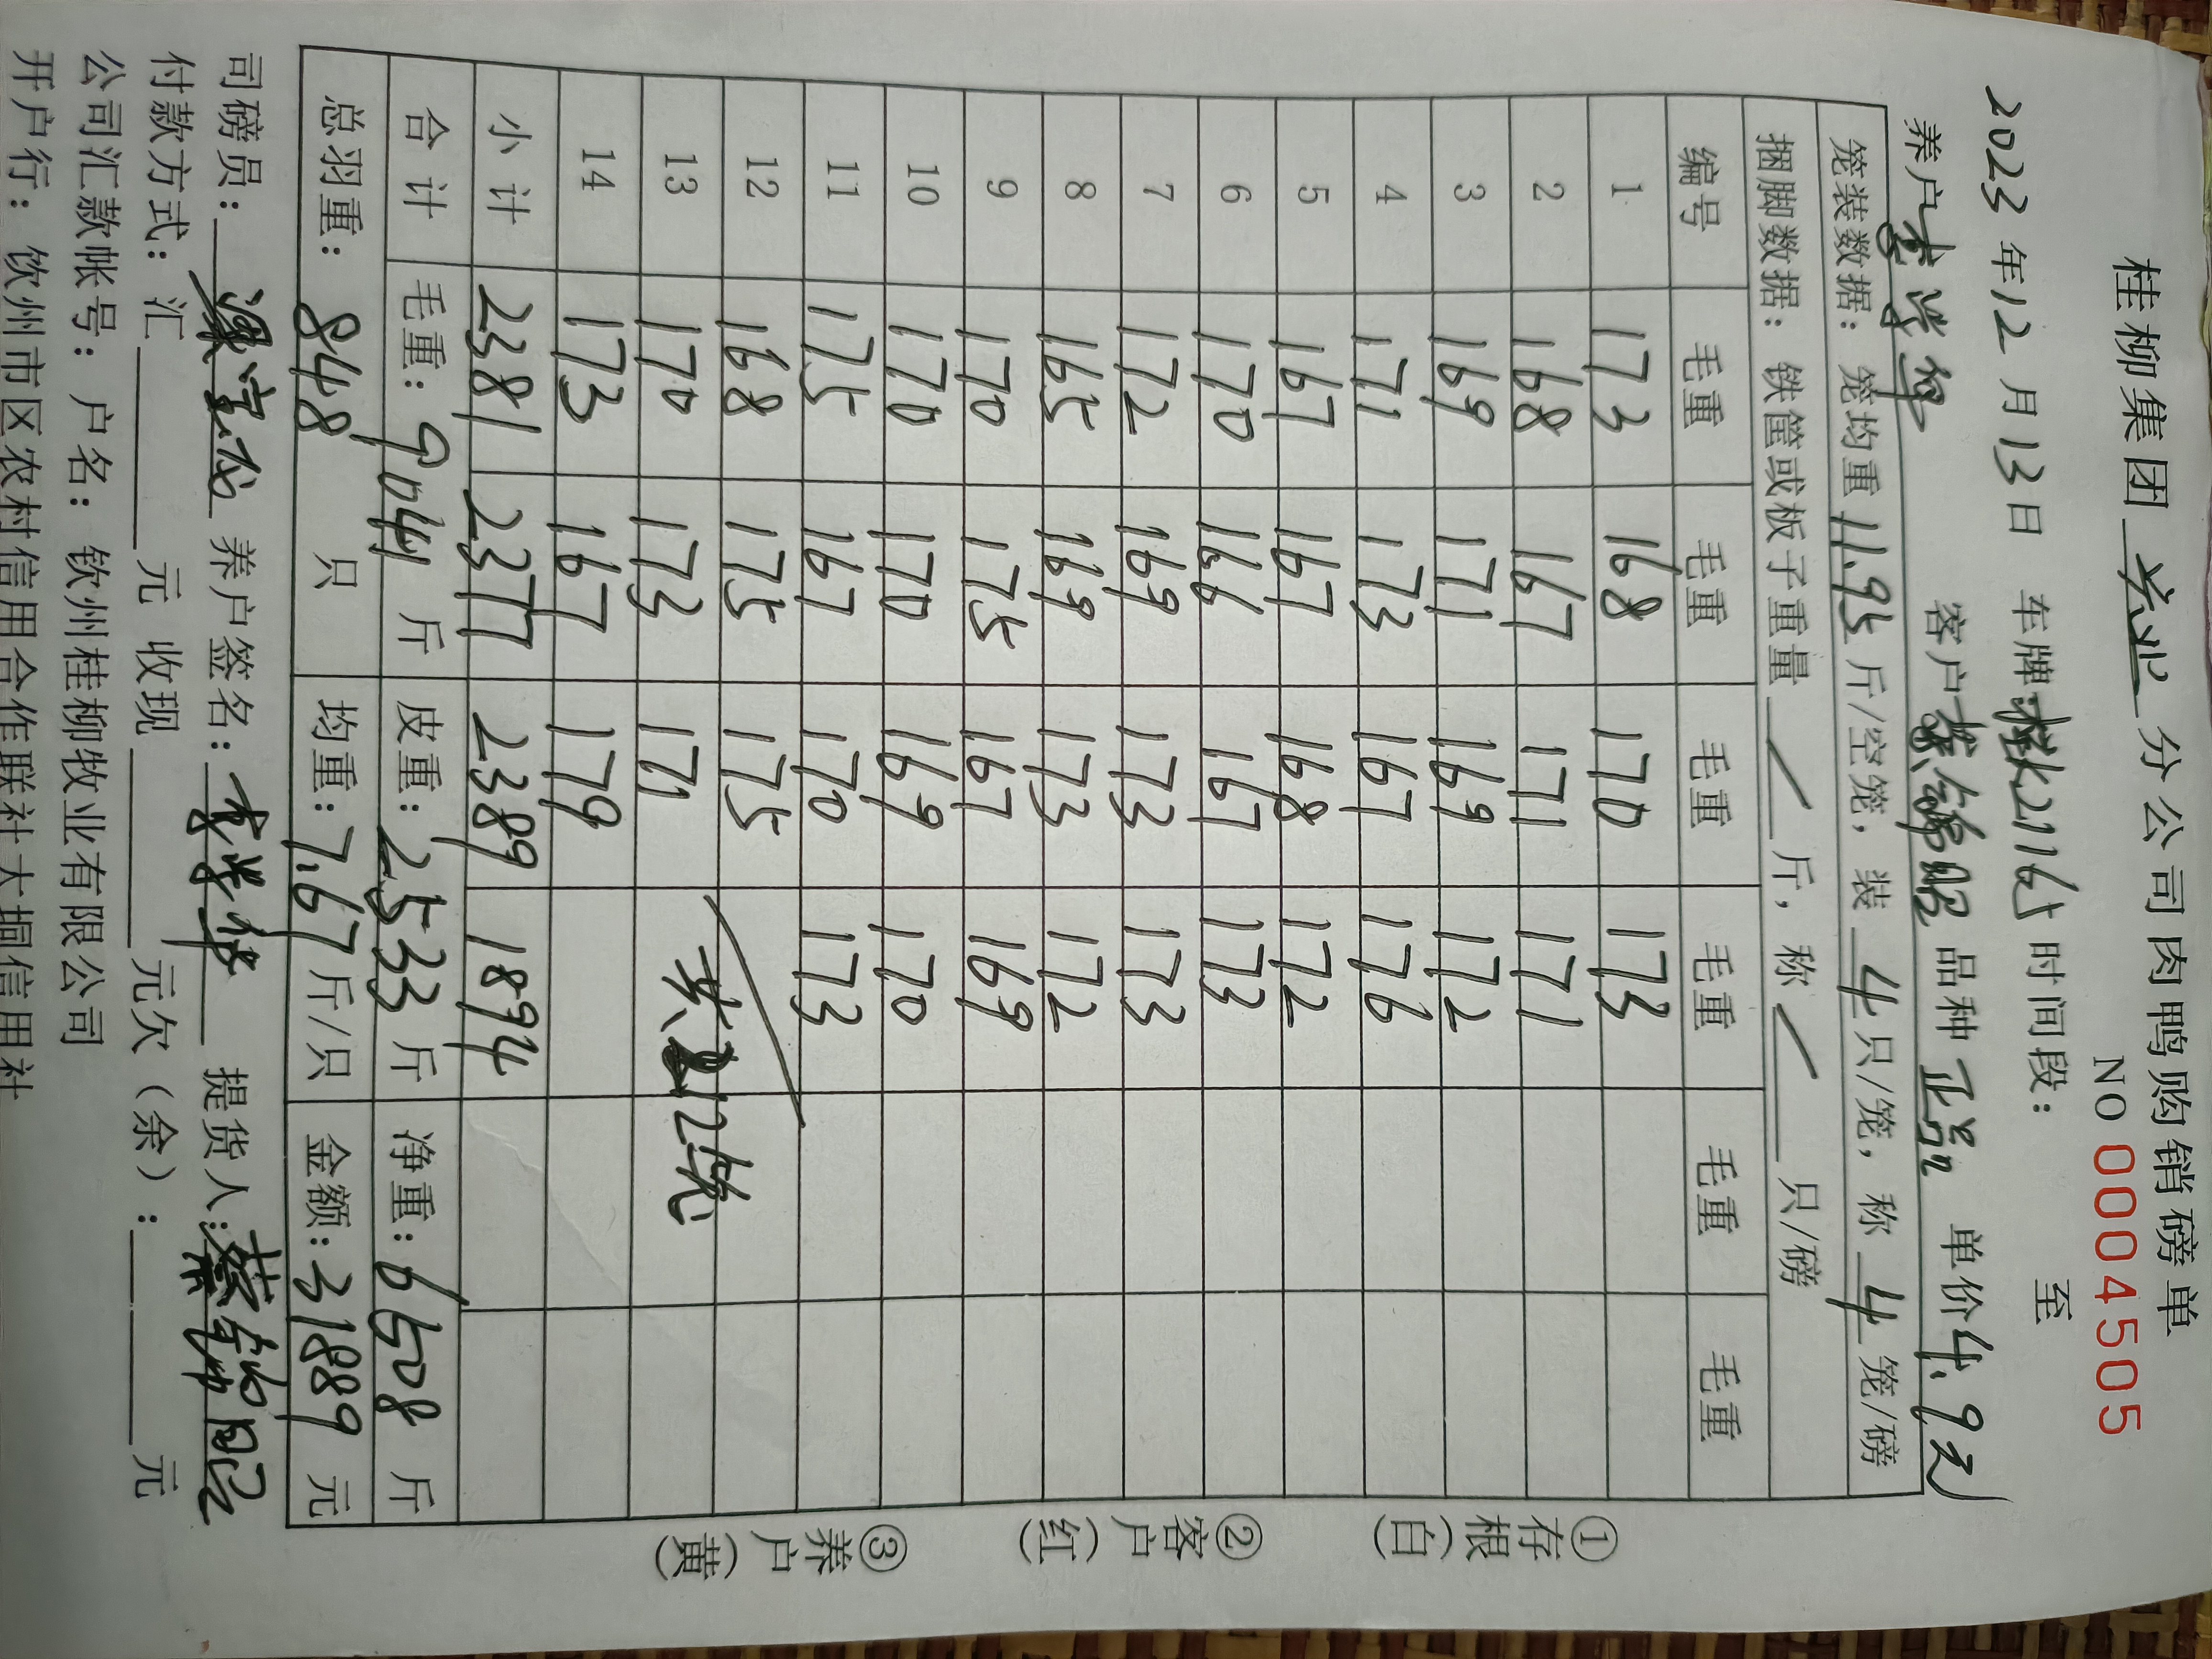 桂柳集团 兴业 分公司肉鸭购销磅单
NO 0004505
2023 年 12 月 13 日 车牌: 2716 时间段： 至
养户 客户 品种 正品 单价 4.9元
笼装数据：笼均重 11.95 斤/空笼，装 4 只/笼，称 4 笼/磅
捆脚数据：铁筐或板子重量 / 斤，称 / 只/磅
编号 毛重 毛重 毛重 毛重 毛重 毛重
1 173 168 170 173
2 168 167 171 171
3 169 171 169 172
4 171 173 167 176
5 167 167 168 172
6 170 166 167 173
7 172 169 173 173
8 165 169 173 172
9 170 175 167 169
10 170 170 169 170
11 175 167 170 173
12 168 175 175
13 170 173 171 共212笼
14 173 167 179
小计 2381 2377 2389 1894
合计 毛重：9041 斤 皮重：2533 斤 净重：6508 斤
总羽重： 848 只 均重：7.67 斤/只 金额：31889 元
司磅员： 养户签名： 提货人：
付款方式：汇 元 收现 元欠（余）： 元
公司汇款帐号：户名：钦州桂柳牧业有限公司
开户行：钦州市区农村信用合作联社大垌信用社
①存根（白）
②客户（红）
③养户（黄）